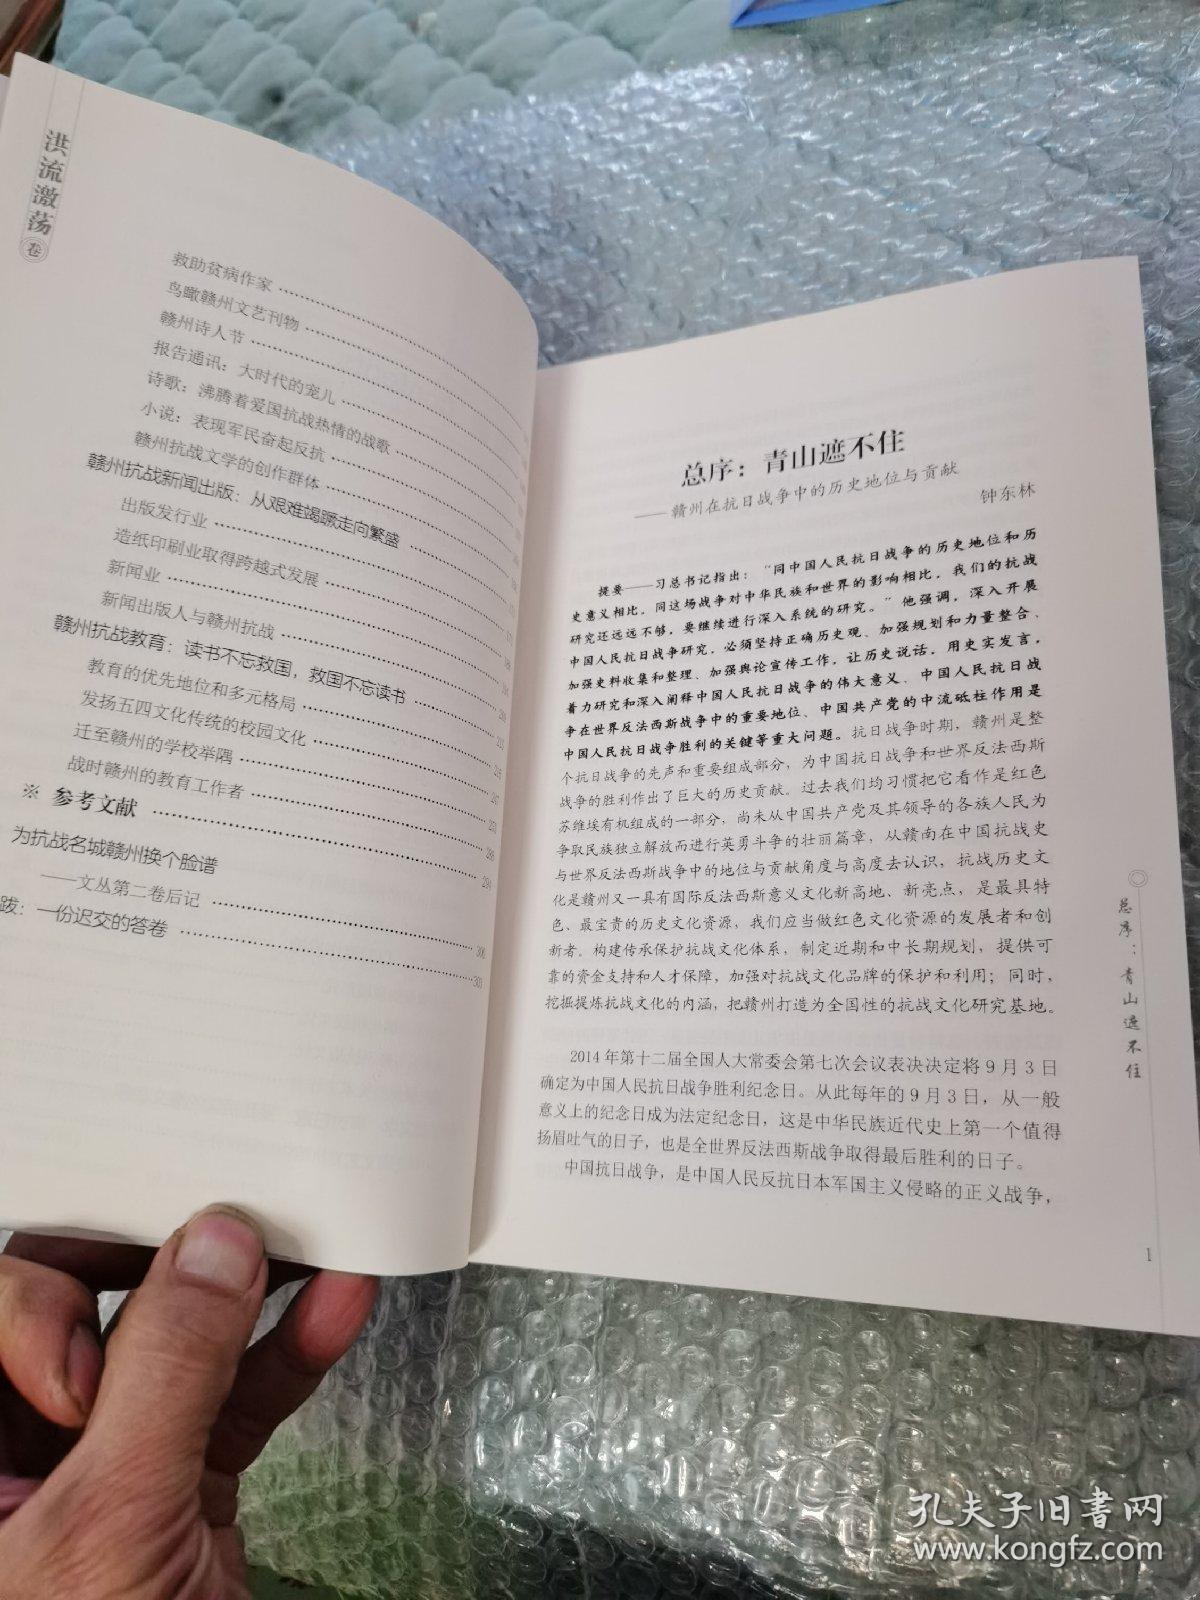 洪流激荡
卷
救助贫病作家
鸟瞰赣州文艺刊物
赣州诗人节
报告通讯：大时代的宠儿
诗歌：沸腾着爱国抗战热情的战歌
小说：表现军民奋起反抗
赣州抗战文学的创作群体
赣州抗战新闻出版：从艰难竭蹶走向繁盛
出版发行业
造纸印刷业取得跨越式发展
新闻业
新闻出版人与赣州抗战
赣州抗战教育：读书不忘救国，救国不忘读书
教育的优先地位和多元格局
发扬五四文化传统的校园文化
迁至赣州的学校举隅
战时赣州的教育工作者
※ 参考文献
为抗战名城赣州换个脸谱
——文丛第二卷后记
跋：一份迟交的答卷
总序：青山遮不住
——赣州在抗日战争中的历史地位与贡献
钟东林
提要——习总书记指出：“同中国人民抗日战争的历史地位和历
史意义相比，同这场战争对中华民族和世界的影响相比，我们的抗战
研究还远远不够，要继续进行深入系统的研究。”他强调，深入开展
中国人民抗日战争研究，必须坚持正确历史观、加强规划和力量整合、
加强史料收集和整理、加强舆论宣传工作，让历史说话，用史实发言，
着力研究和深入阐释中国人民抗日战争的伟大意义、中国人民抗日战
争在世界反法西斯战争中的重要地位、中国共产党的中流砥柱作用是
中国人民抗日战争胜利的关键等重大问题。抗日战争时期，赣州是整
个抗日战争的先声和重要组成部分，为中国抗日战争和世界反法西斯
战争的胜利作出了巨大的历史贡献。过去我们均习惯把它看作是红色
苏维埃有机组成的一部分，尚未从中国共产党及其领导的各族人民为
争取民族独立解放而进行英勇斗争的壮丽篇章，从赣南在中国抗战史
与世界反法西斯战争中的地位与贡献角度与高度去认识，抗战历史文
化是赣州又一具有国际反法西斯意义文化新高地、新亮点，是最具特
色、最宝贵的历史文化资源，我们应当做红色文化资源的发展者和创
新者。构建传承保护抗战文化体系，制定近期和中长期规划，提供可
靠的资金支持和人才保障，加强对抗战文化品牌的保护和利用；同时，
挖掘提炼抗战文化的内涵，把赣州打造为全国性的抗战文化研究基地。
2014年第十二届全国人大常委会第七次会议表决决定将9月3日
确定为中国人民抗日战争胜利纪念日。从此每年的9月3日，从一般
意义上的纪念日成为法定纪念日，这是中华民族近代史上第一个值得
扬眉吐气的日子，也是全世界反法西斯战争取得最后胜利的日子。
中国抗日战争，是中国人民反抗日本军国主义侵略的正义战争，
总序：青山遮不住
1
孔夫子旧书网
www.kongfz.com